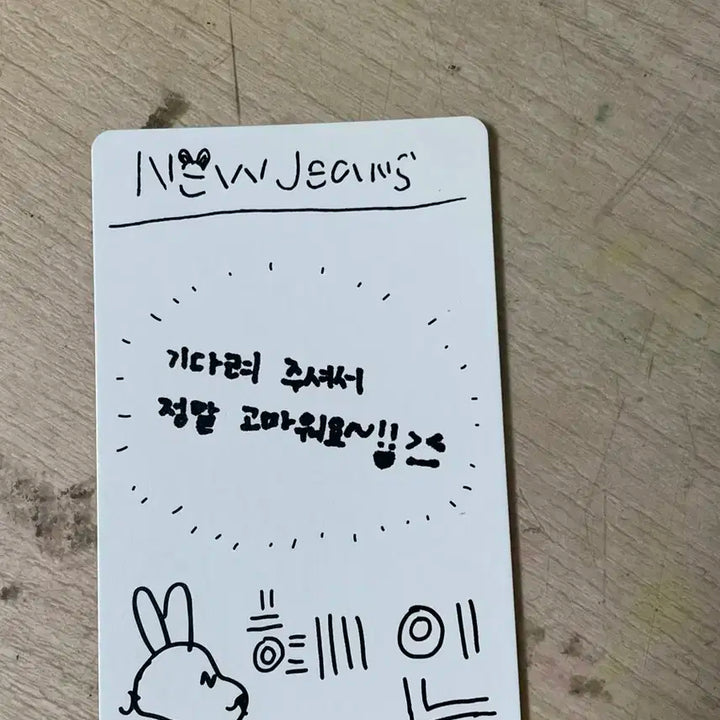 NEWJEANS
기다려 주셔서
정말 고마워요~!! ><
혜인